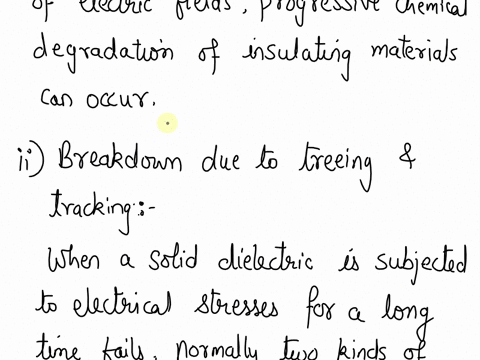 of electric fields, progressive chemical
degradation of insulating materials
can occur.
ii) Breakdown due to treeing &
tracking:-
When a solid dielectric is subjected
to electrical stresses for a long
time fails, normally two kinds of